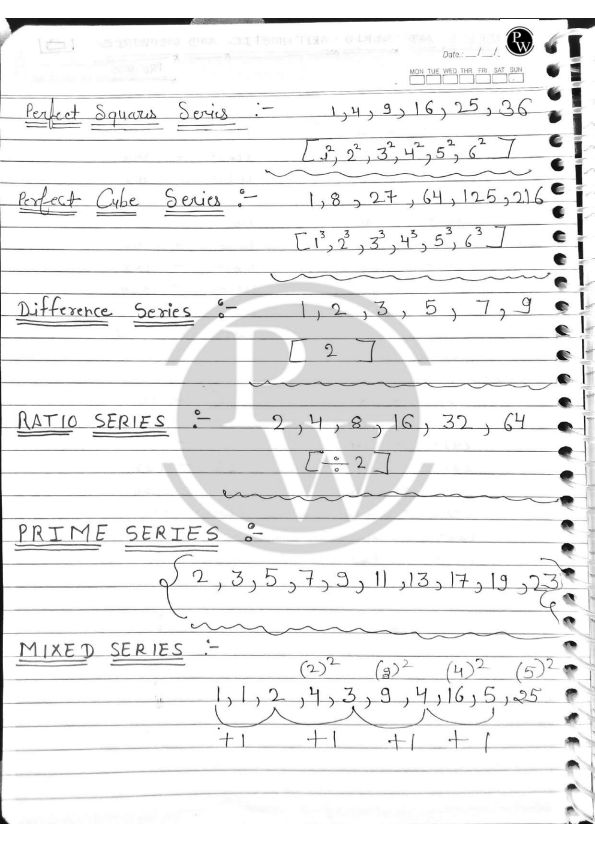 PW
Date: __/__/__
MON TUE WED THR FRI SAT SUN
Perfect Squares Series :- 1, 4, 9, 16, 25, 36
[1², 2², 3², 4², 5², 6²]
Perfect Cube Series :- 1, 8, 27, 64, 125, 216
[1³, 2³, 3³, 4³, 5³, 6³]
Difference Series :- 1, 2, 3, 5, 7, 9
[ 2 ]
RATIO SERIES :- 2, 4, 8, 16, 32, 64
[÷ 2]
PRIME SERIES :-
{2, 3, 5, 7, 9, 11, 13, 17, 19, 23}
MIXED SERIES :-
(2)² (3)² (4)² (5)²
1, 1, 2, 4, 3, 9, 4, 16, 5, 25
+1 +1 +1 +1